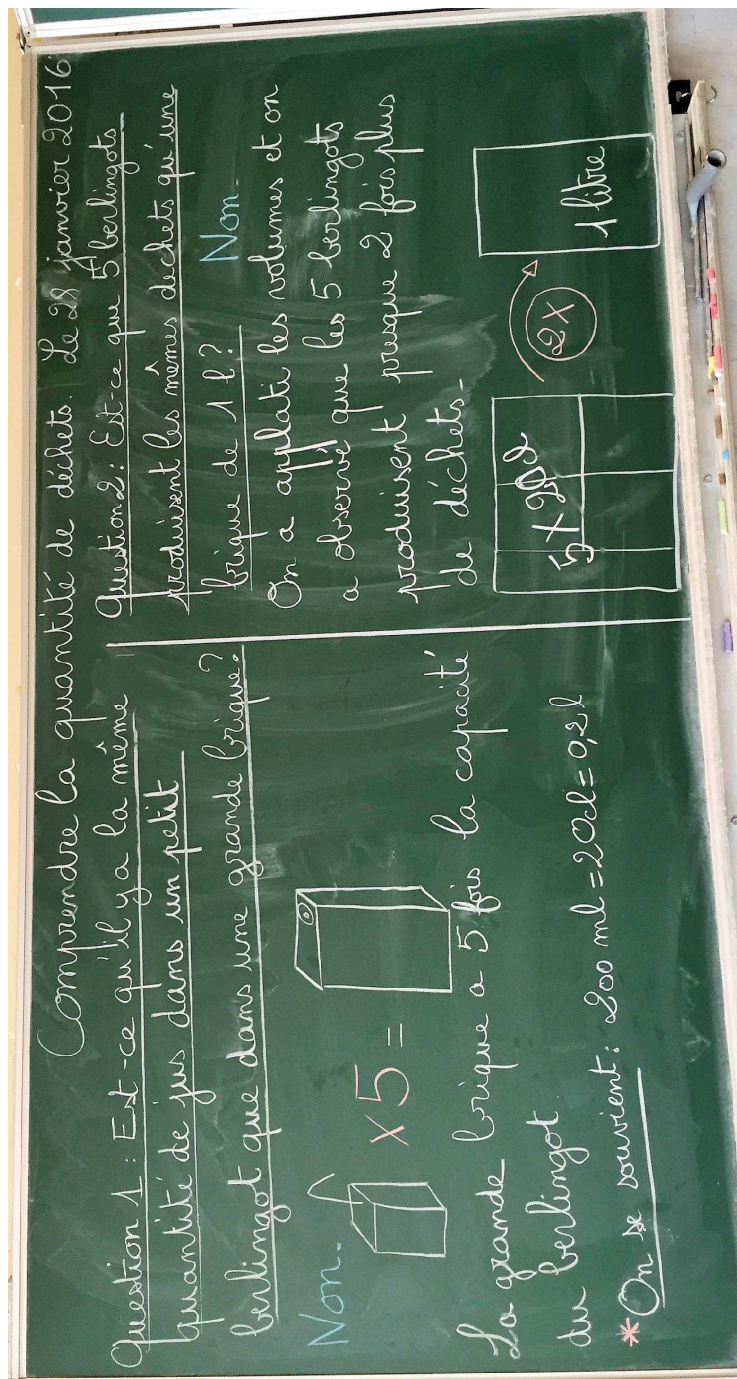 Comprendre la quantité de déchets. Le 28 janvier 2016
Question 1 : Est-ce qu'il y a la même
quantité de jus dans un petit
berlingot que dans une grande brique?
Non.
x 5 =
La grande brique a 5 fois la capacité
du berlingot.
* On se souvient : 200 ml = 20cl = 0,2 l
Question 2 : Est-ce que 5 berlingots
produisent les mêmes déchets qu'une
brique de 1 l ? Non.
On a applati les volumes et on
a observé que les 5 berlingots
produisent presque 2 fois plus
de déchets.
5 x 20cl
2x
1 litre